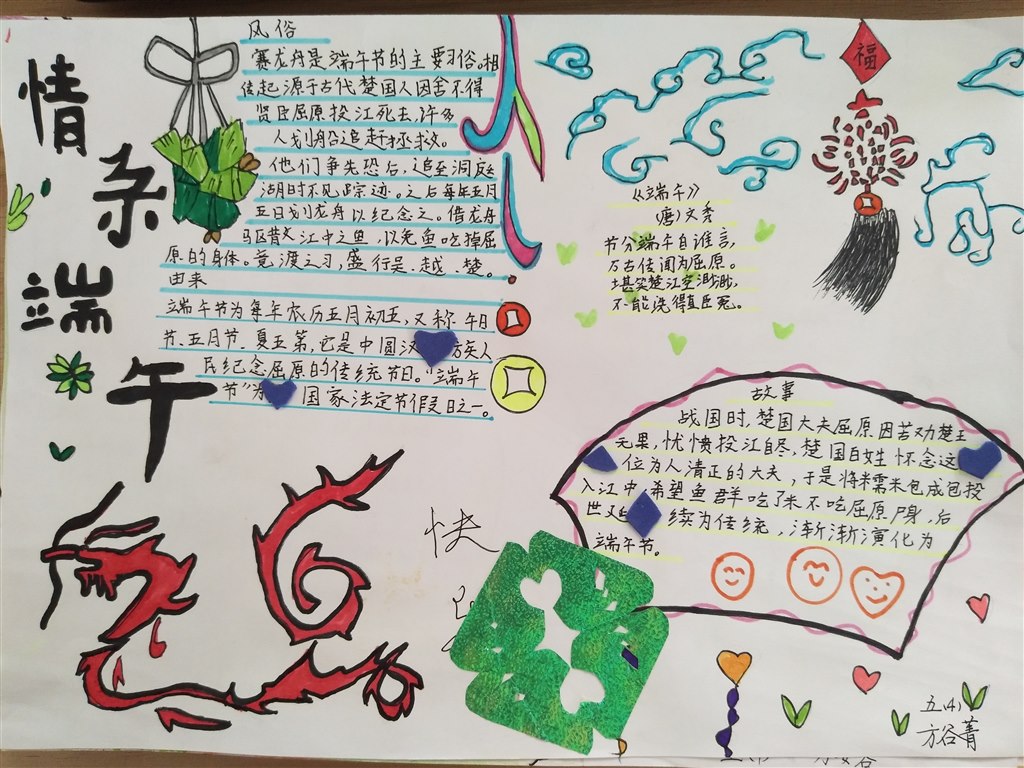 情系端午
风俗
赛龙舟是端午节的主要习俗。相
传起源于古代楚国人因舍不得
贤臣屈原投江死去,许多
人划船追赶拯救。
他们争先恐后,追至洞庭
湖时不见踪迹。之后每年五月
五日划龙舟以纪念之。借龙舟
驱散江中之鱼,以免鱼吃掉屈
原的身体。竞渡之习,盛行吴、越、楚。
由来
端午节为每年农历五月初五,又称午日
节、五月节、夏五第,它是中圆汉 族人
民纪念屈原的传统节日。"端午
节"为 国家法定节假日一。
《端午》
(唐)文秀
节分端午自谁言,
万古传闻为屈原。
堪笑楚江空渺渺,
不能洗得直臣冤。
福
故事
战国时,楚国大夫屈原因苦劝楚王
无果,忧愤投江自尽,楚国百姓怀念这
位为人清正的大夫,于是将糯米包成包投
入江中,希望鱼群吃了米不吃屈原尸身,后
世 续为传统,渐渐演化为
端午节。
快
五(4)
方谷菁